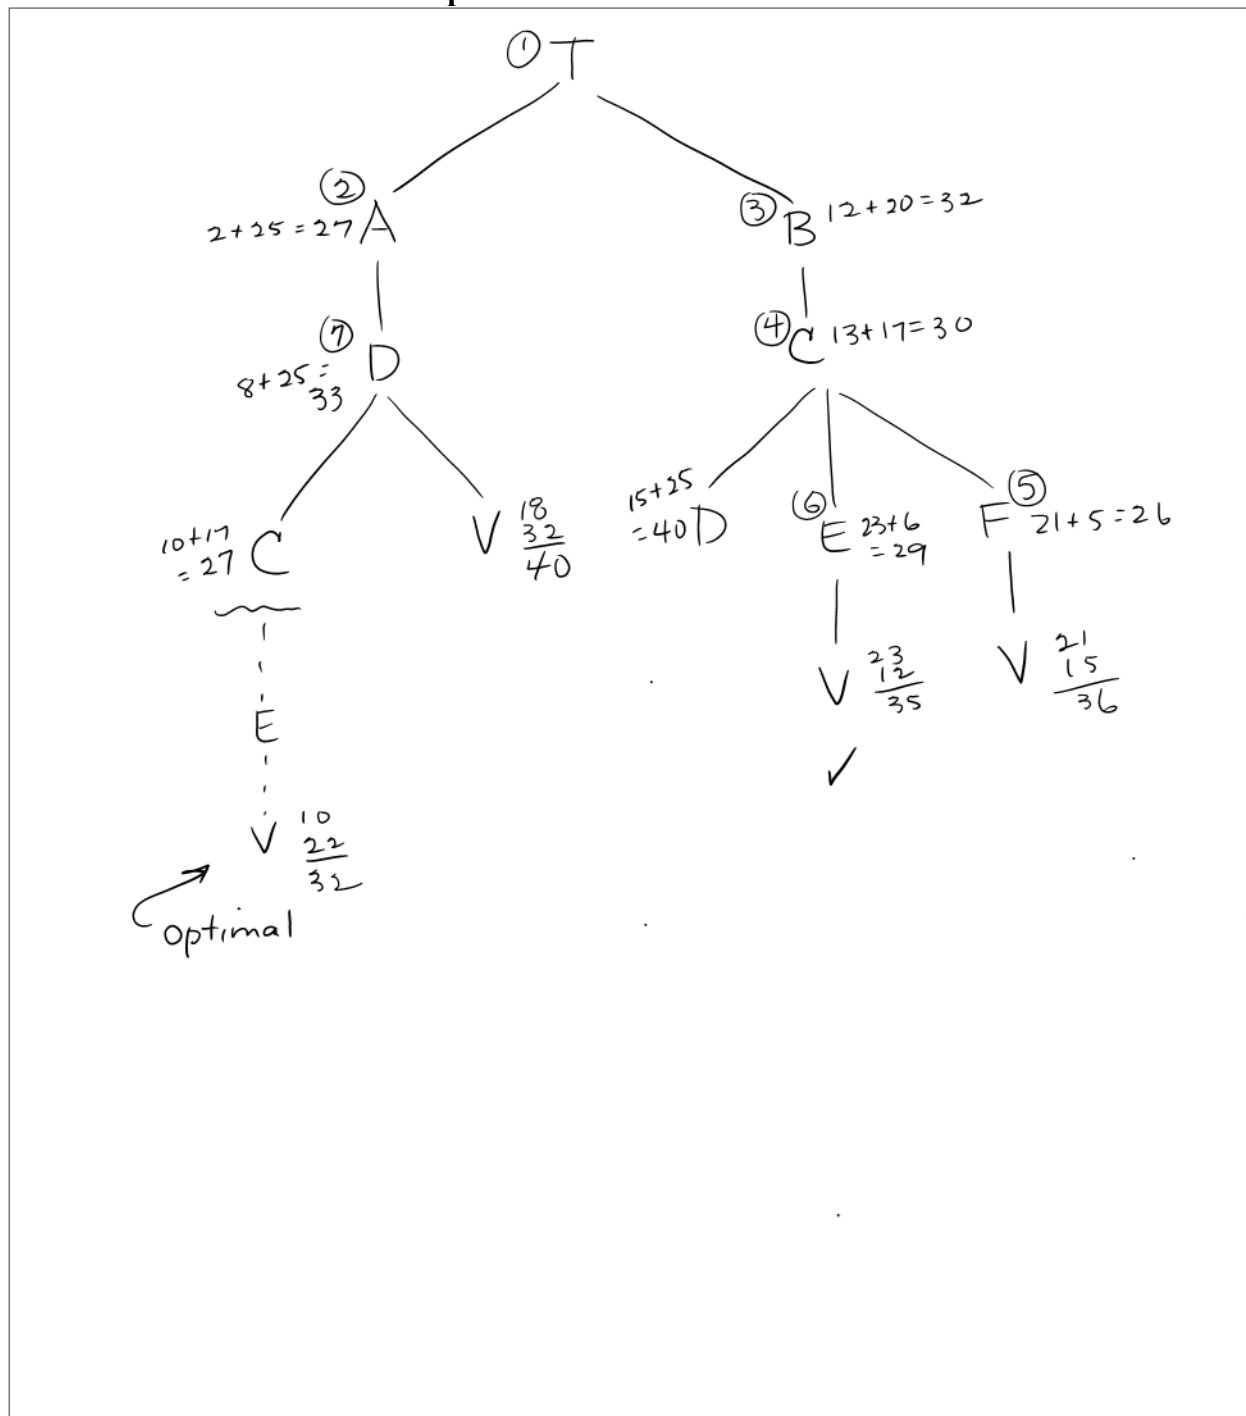 ① T
②
2+25=27 A
③ B 12+20=32
④ C 13+17=30
⑦
8+25= D
33
10+17
=27 C
V 18
32
40
15+25
=40 D
⑥
E 23+6
=29
⑤
F 21+5=26
V 23
12
35
✓
V 21
15
36
E
V 10
22
32
optimal